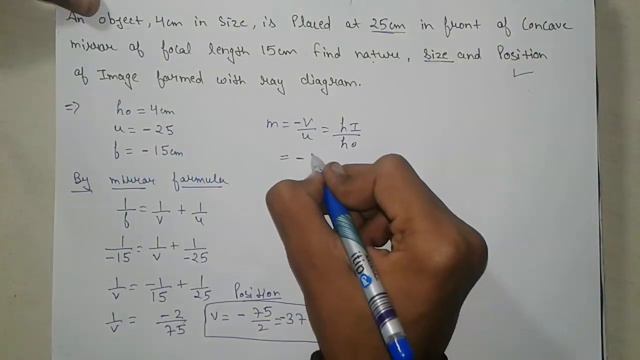 An object, 4cm in size, is Placed at 25cm in front of Concave
mirror of focal length 15cm find nature, size and Position
of Image formed with ray diagram.
=> ho = 4cm
u = -25
f = -15cm
By mirror formula
1/f = 1/v + 1/u
1/-15 = 1/v + 1/-25
1/v = -1/15 + 1/25
1/v = -2/75
Position
v = -75/2 = -37
m = -v/u = hI/ho
= -